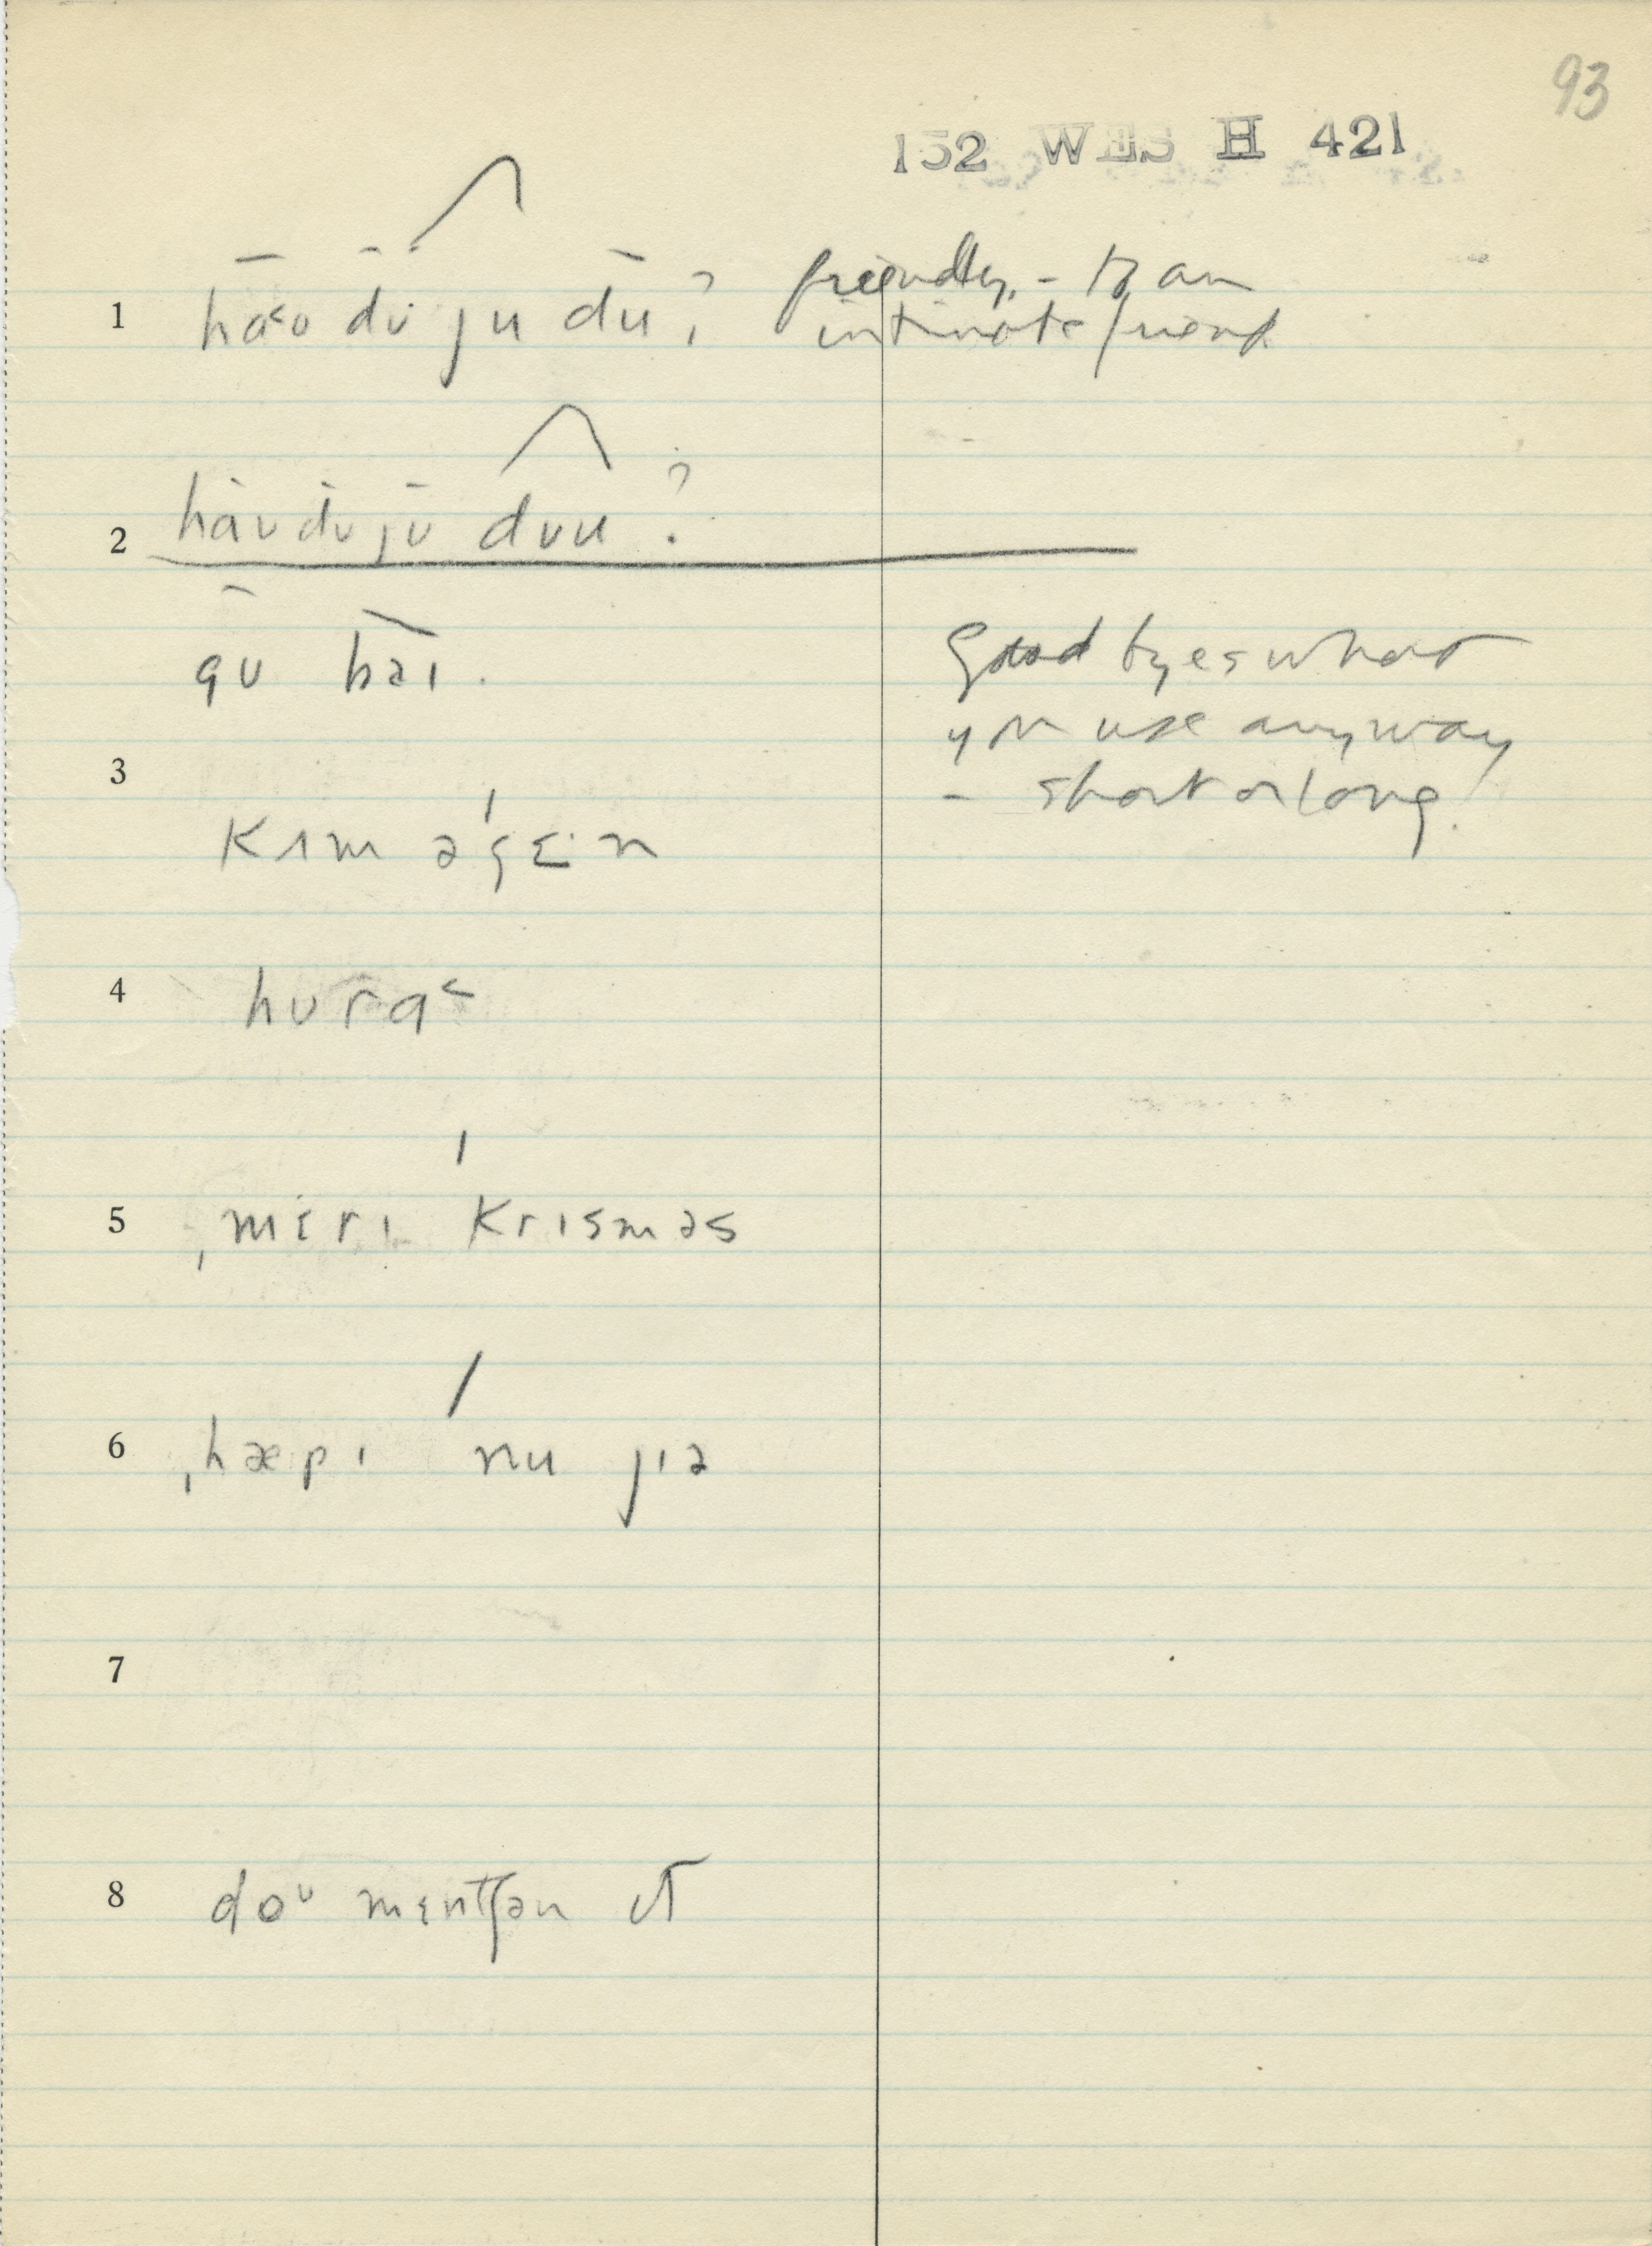 93
152 WES H 421
1 haʊ dʊ ju du? friendly, - to an
intimate friend
2 haʊ dʊ jʊ dʊu?
gʊ baɪ. Good by es what
you use anyway
3 - short or long.
kʌm əgɛ·n
4 hʊrɑ˂
5 ˌmɛrɪ krɪsməs
6 ˌhæpɪ nu jɪə
7
8 doᶷ mɛntʃən ɪt